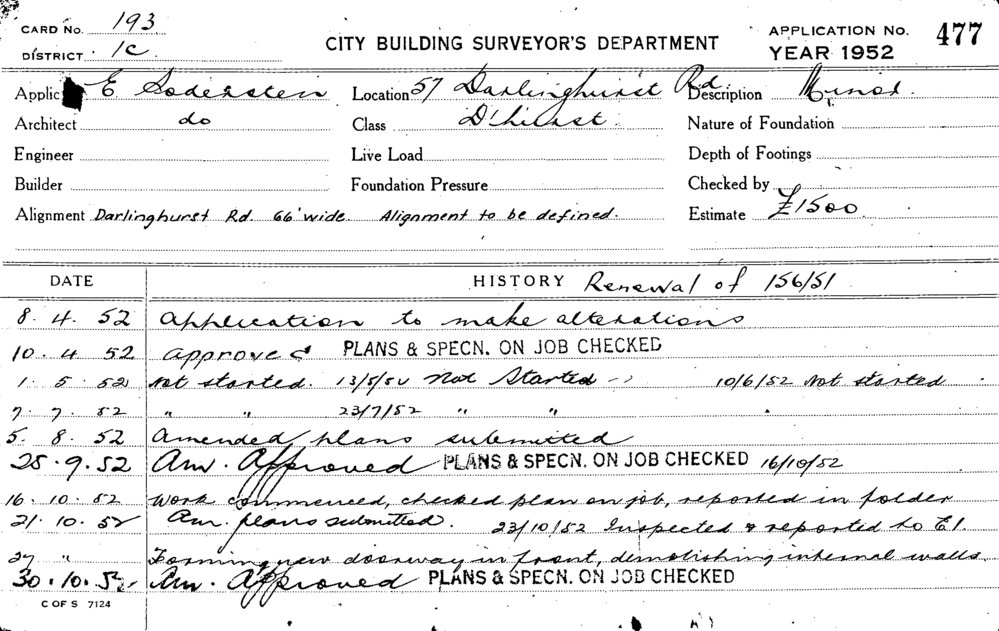 CARD No. 193
DISTRICT 1C
CITY BUILDING SURVEYOR'S DEPARTMENT
APPLICATION No. 477
YEAR 1952
Applic E Sodersten Location 57 Darlinghurst Rd. Description Minor.
Architect do Class D'hurst. Nature of Foundation
Engineer Live Load Depth of Footings
Builder Foundation Pressure Checked by
Alignment Darlinghurst Rd. 66' wide. Alignment to be defined. Estimate £1500
DATE HISTORY Renewal of 156/51
8. 4. 52 Application to make alterations
10. 4 52 approved PLANS & SPECN. ON JOB CHECKED
1. 5. 52 Not started. 13/5/52 Not Started -- 10/6/52 Not started
7. 7. 52 " " 23/7/52 " "
5. 8. 52 Amended plans submitted
25. 9. 52 Am. Approved PLANS & SPECN. ON JOB CHECKED 16/10/52
16. 10. 52 Work commenced, checked plan on job, reported in folder
21. 10. 52 Am. plans submitted. 23/10/52 Inspected & reported to E1.
27 " Forming new doorway in front, demolishing internal walls.
30. 10. 52 Am. Approved PLANS & SPECN. ON JOB CHECKED
C OF S 7124